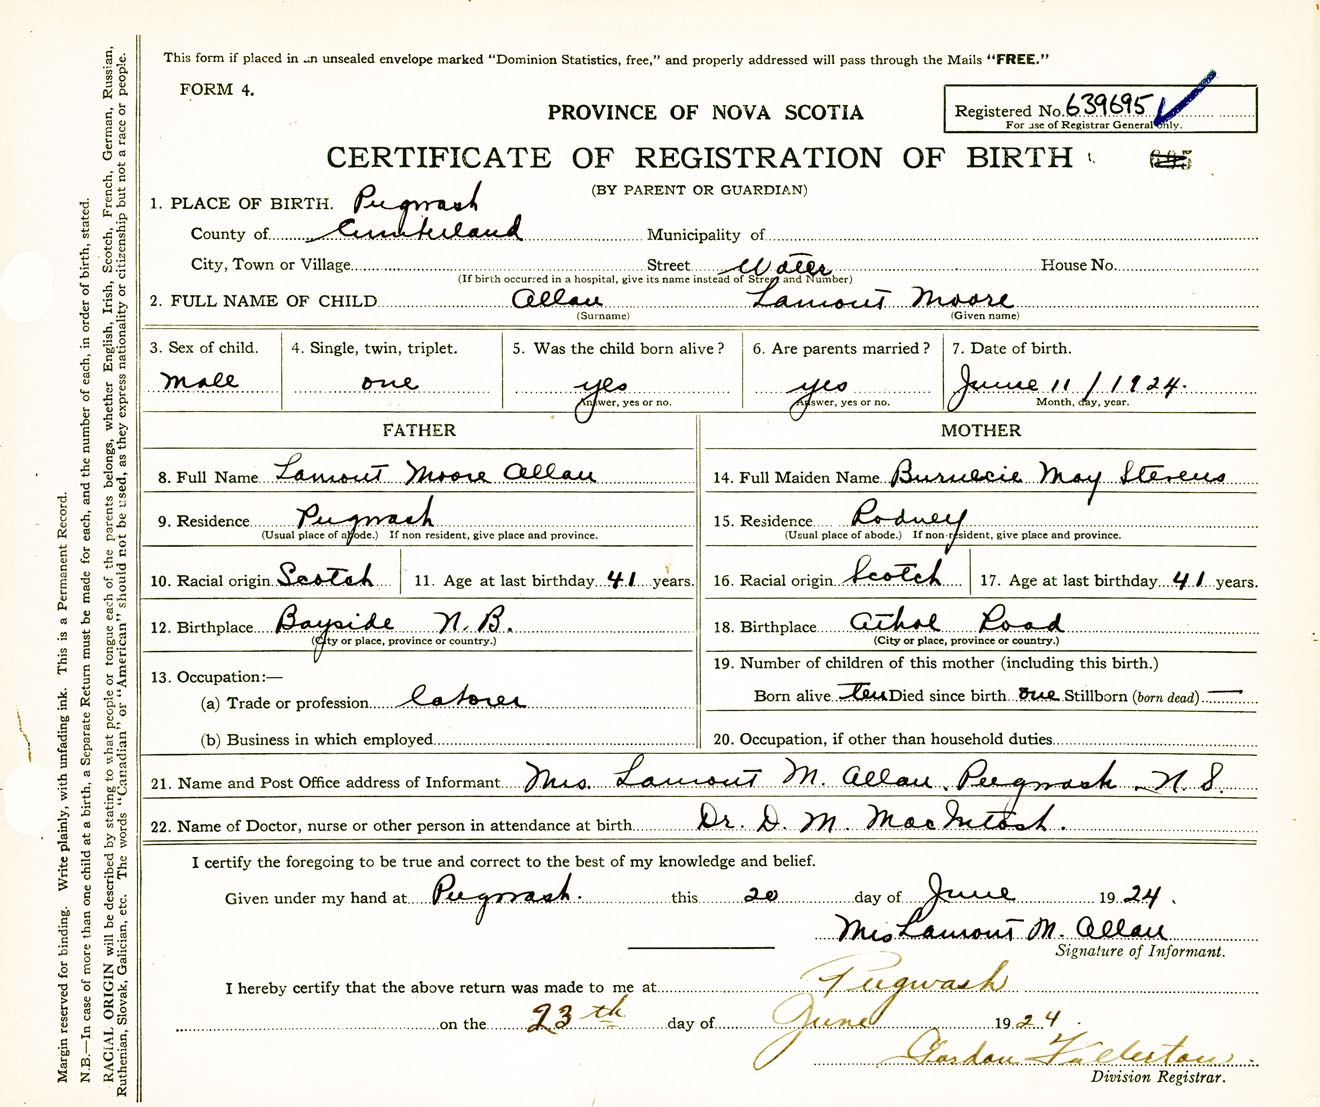 This form if placed in an unsealed envelope marked "Dominion Statistics, free," and properly addressed will pass through the Mails "FREE."
FORM 4.
PROVINCE OF NOVA SCOTIA
Registered No. 639695
For use of Registrar General only.
CERTIFICATE OF REGISTRATION OF BIRTH
(BY PARENT OR GUARDIAN)
1. PLACE OF BIRTH. Pugwash
County of Cumberland Municipality of
City, Town or Village Street Water House No.
(If birth occurred in a hospital, give its name instead of Street and Number)
2. FULL NAME OF CHILD Allan Lamont Moore
(Surname) (Given name)
3. Sex of child. 4. Single, twin, triplet. 5. Was the child born alive? 6. Are parents married? 7. Date of birth.
Male one yes yes June 11 / 1924.
Answer, yes or no. Answer, yes or no. Month, day, year.
FATHER MOTHER
8. Full Name Lamont Moore Allan 14. Full Maiden Name May Stevens
9. Residence Pugwash 15. Residence Rodney
(Usual place of abode.) If non resident, give place and province. (Usual place of abode.) If non-resident, give place and province.
10. Racial origin Scotch 11. Age at last birthday 41 years. 16. Racial origin Scotch 17. Age at last birthday 41 years.
12. Birthplace Bayside N.B. 18. Birthplace Athol Road
(City or place, province or country.) (City or place, province or country.)
13. Occupation:— 19. Number of children of this mother (including this birth.)
(a) Trade or profession laborer Born alive ten Died since birth one Stillborn (born dead) —
(b) Business in which employed 20. Occupation, if other than household duties
21. Name and Post Office address of Informant Mrs. Lamont M. Allan, Pugwash N. S.
22. Name of Doctor, nurse or other person in attendance at birth Dr. D. M. MacIntosh.
I certify the foregoing to be true and correct to the best of my knowledge and belief.
Given under my hand at Pugwash. this 20 day of June 1924.
Mrs Lamont M. Allan
Signature of Informant.
I hereby certify that the above return was made to me at Pugwash
on the 23th day of June 1924.
Gordon Fullerton
Division Registrar.
Margin reserved for binding. Write plainly, with unfading ink. This is a Permanent Record.
N.B.—In case of more than one child at a birth, a Separate Return must be made for each, and the number of each, in order of birth, stated.
RACIAL ORIGIN will be described by stating to what people or tongue each of the parents belongs, whether English, Irish, Scotch, French, German, Russian,
Ruthenian, Slovak, Galician, etc. The words "Canadian" or "American" should not be used, as they express nationality or citizenship but not a race or people.